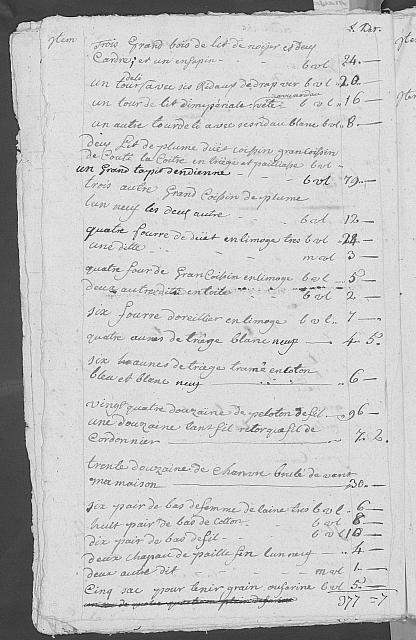 L Kar.
Item Trois Grand bois de lit de noijer et deux
Cardre, et un en sapin - b vl 24. -
un tour de lit avec ses Ridaux de drap ver b vl 20.
un tour de lit d'impériale b vl 16 -
un autre tour de lit avec ses ridau blanc b vl. 8 -
deux Lit de plume duet coissin gran coissin
de Coute la Coitre en triège et paillasse b vl -
un Grand tapit dendienne - b vl 79. -
trois autre Grand Coissin de plume
l'un neuf les deux autre - b vl 12. -
quatre fourre de duet en limoge tres b vl 24 -
une ditte - m vl 3 -
quatre four de Gran Coissin en limoge b vl 5 -
deux autre ditte en toile b vl 2. -
six fourre d'oreillier en limoge b vl. 7 -
quatre aunes de triège blanc neuf - 4. 5
six aunes de triège tramé en coton
bleu et blanc neuf 6 -
vingt quatre douzaine de peloton de fil 96 -
une douzaine tant fil retors que fil de
Cordonnier - 7. 2.
trente douzaine de chanvre
ma maison - 30. -
six pair de bas de femme de laine tres b vl 6 -
huit pair de bas de Cotton b vl 8 -
dix pair de bas de fil - b vl 10 -
deux chapau de paille fin l'un neuf - 4 -
deux autre dit - m vl 1 -
Cinq sac pour tenir grain ou farine b vl 5 -
377 = 7